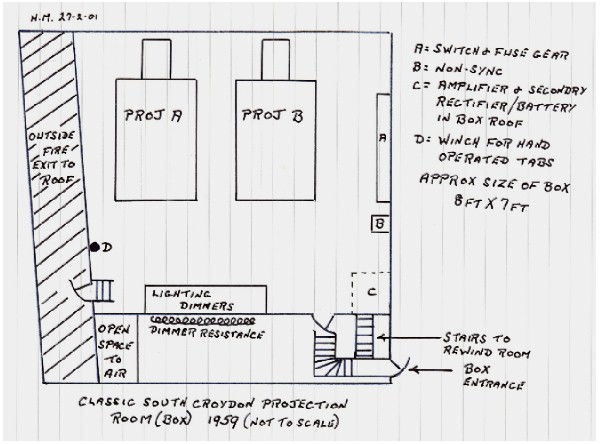 N.M. 27-2-01
A = SWITCH & FUSE GEAR
B = NON-SYNC
C = AMPLIFIER & SECONDRY
RECTIFIER/BATTERY
IN BOX ROOF
D = WINCH FOR HAND
OPERATED TABS
APPROX SIZE OF BOX
8FT X 7FT
PROJ A
PROJ B
A
OUTSIDE
FIRE
EXIT TO
ROOF
B
D
C
LIGHTING
DIMMERS
DIMMER RESISTANCE
OPEN
SPACE
TO
AIR
STAIRS TO
REWIND ROOM
BOX
ENTRANCE
CLASSIC SOUTH CROYDON PROJECTION
ROOM (BOX) 1959 (NOT TO SCALE)